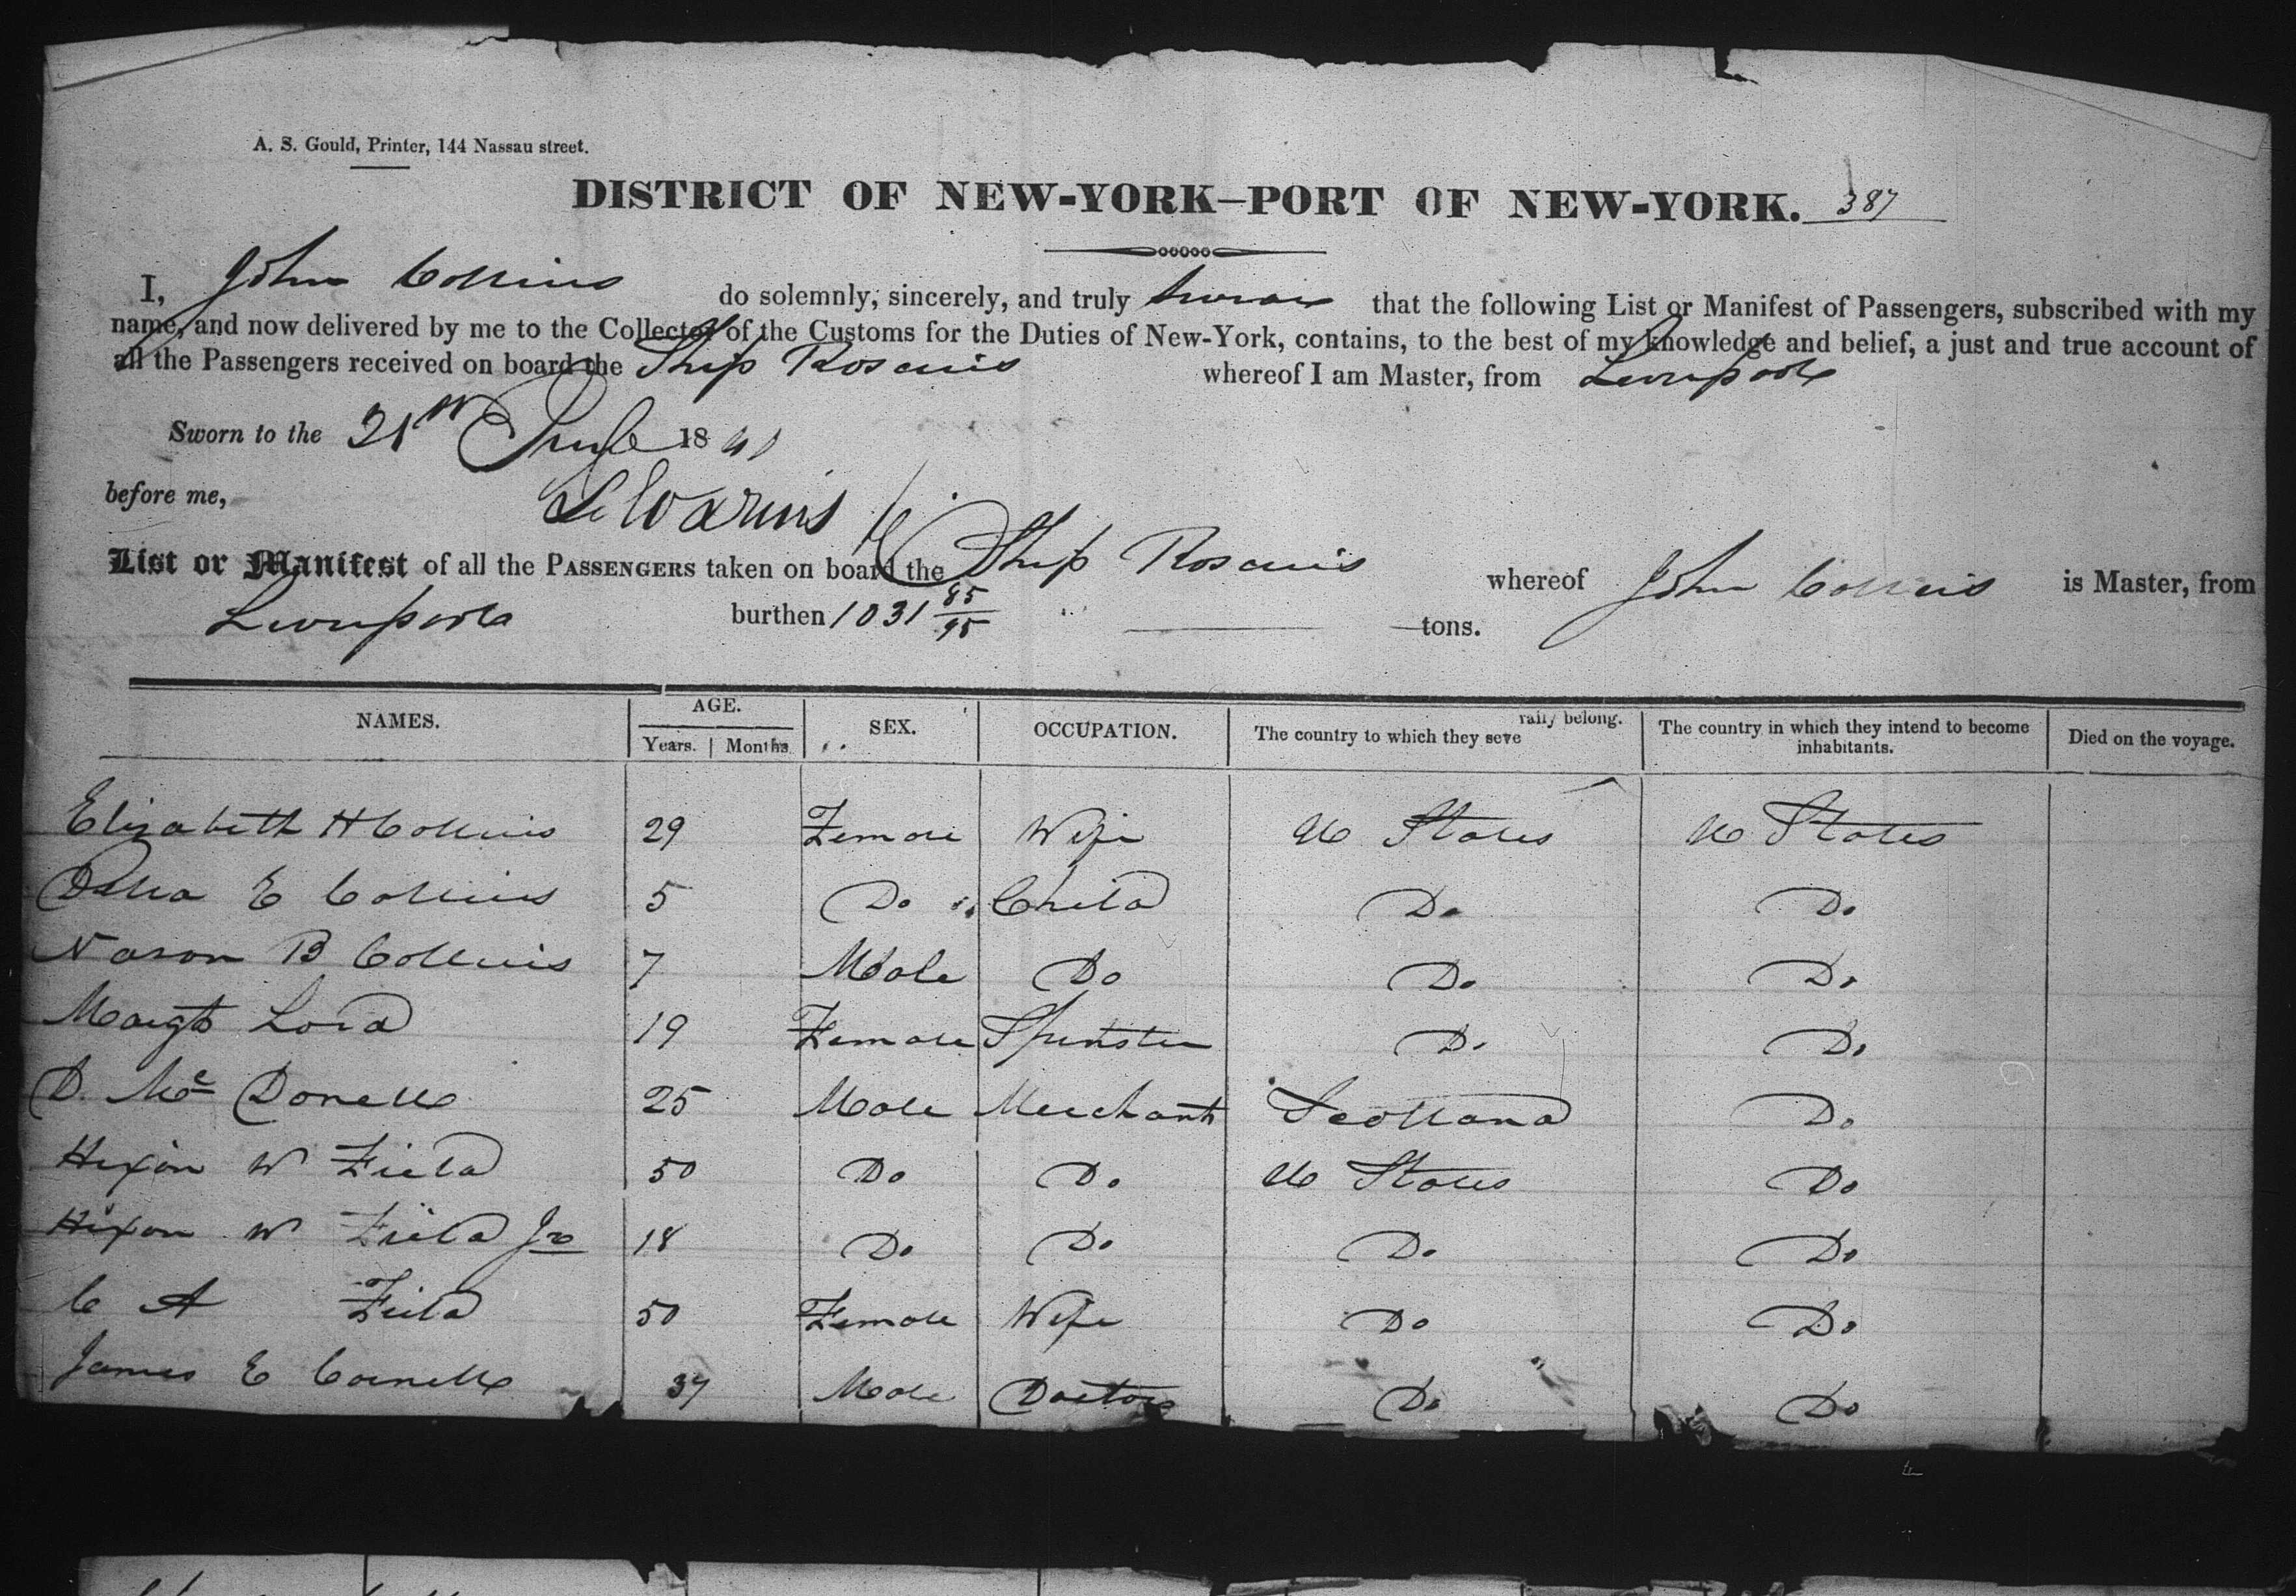 A. S. Gould, Printer, 144 Nassau street.
DISTRICT OF NEW-YORK—PORT OF NEW-YORK. 387
I, John Collins do solemnly, sincerely, and truly swear that the following List or Manifest of Passengers, subscribed with my
name, and now delivered by me to the Collector of the Customs for the Duties of New-York, contains, to the best of my knowledge and belief, a just and true account of
all the Passengers received on board the Ship Roscius whereof I am Master, from Liverpool
Sworn to the 21st 1841
before me,
List or Manifest of all the PASSENGERS taken on board the Ship Roscius whereof John Collins is Master, from
Liverpool burthen 1031 85/95 tons.
NAMES. AGE. SEX. OCCUPATION. The country to which they seve rally belong. The country in which they intend to become inhabitants. Died on the voyage.
Years. Months
Elizabeth H Collins 29 Female Wife U States U States
E Collins 5 Do Child Do Do
Nason B Collins 7 Male Do Do Do
Margt Lord 19 Female Spinster Do Do
D. Mc Donell 25 Male Merchant Scotland Do
Hixon W Field 50 Do Do U States Do
Hixon W Field Jr 18 Do Do Do Do
C A Field 50 Female Wife Do Do
James E Cornell 37 Male Doctor Do Do